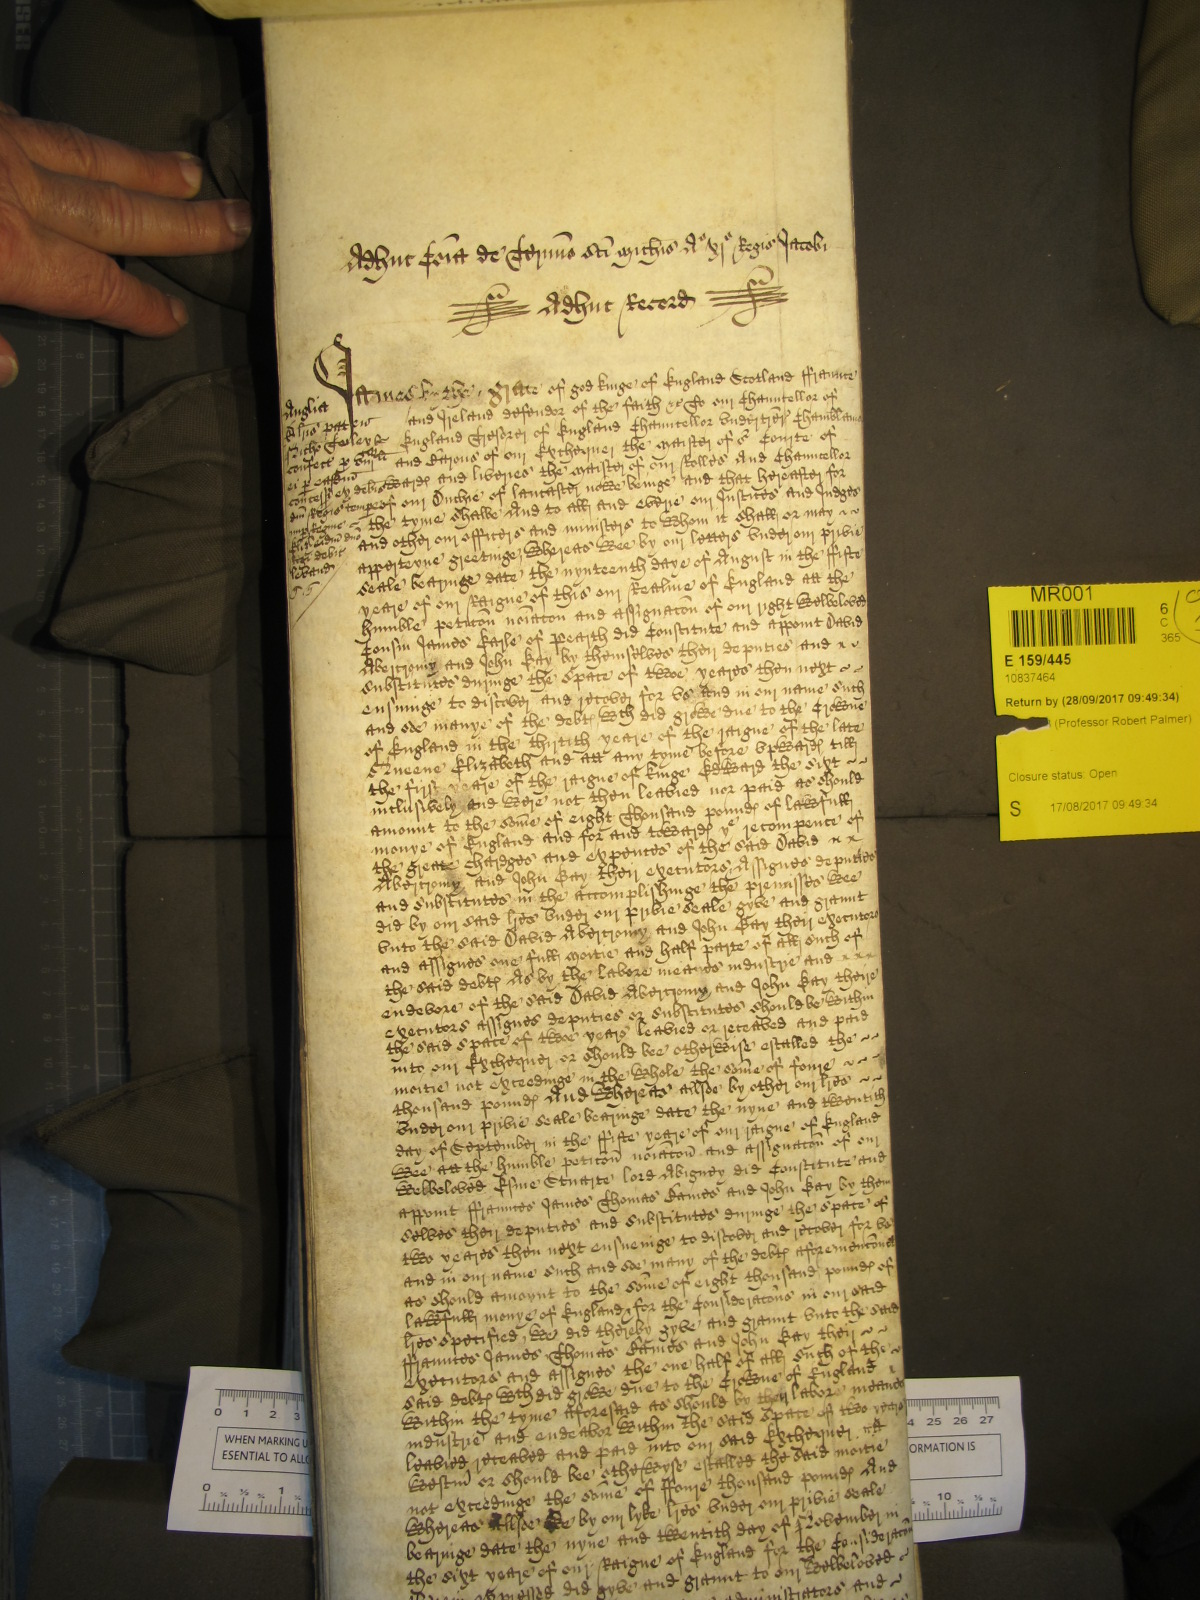 Adhuc Com̃ia de Termino Sc̃i Mich̃is Aº xjº Regis Jacobi
Adhuc Record
James by the grace of god kinge of England Scotland ffraunce
and Ireland defendor of the faith &c To our Chauncellor of
England Tresorer of England Chauncellor undertrer Chamblains
and Barons of our Exchequer the Maister of oʳ Courte of
Wardes and liveries the maister of our Rolles And Chauncellor
of our Duchie of lancaster nowe beinge and that hereafter for
the tyme shalbe And to all and every our Justices and Judges
and other our officers and ministers to whom it shall or may
apperteyne greetinge, Whereas Wee by our letters under our privie
seale bearinge date the nynteenth daye of August in the fifte
yeare of our Raigne of this our Realme of England att the
humble petic̃on noiac̃on and assignac̃on of our right Welbeloved
Cousin James Earle of Pearth did Constitute and appoint David
Abercromy and John Bay by themselves their deputies and
substitutes duringe the space of twoe yeares then next
ensuinge to discover and recover for us and in our name such
and soe manye of the debtes wch did growe due to the Crowne
of England in the thirtith yeare of the raigne of the late
Queene Elizabeth and att any tyme before upwardes till
the first yeare of the raigne of kinge Edward the sixt
inclusively and were not then leavied nor paid as should
amount to the som̃e of eight thousand poundes of lawfull
monye of England and for and towardes yᵉ recompence of
the greate chardges and expences of the said David
Abercromy and John Bay their executors, Assignes deputies
and substitutes in the accomplishinge the premisses Wee
did by our said lr̃es under our privie seale gyve and graunt
unto the said David Abercromy and John Bay their executors
and assignes one full moitie and half parte of all such of
the said debtes As by the labore meanes industrie and
endevore of the said David Abercromy and John Bay theire
executors assignes deputies or substitutes should be within
the said space of twoe years leavied or receaved and paid
into our Exchequer or should bee otherwise estalled the
moitie not exceedinge in the whole the som̃e of foure
thousand poundes And Whereas allsoe by other our lr̃es
under our privie seale bearinge date the nyne and twentith
day of September in the ffifte yeare of our raigne of England
Wee att the humble petic̃on noiac̃on and assignac̃on of our
Welbeloved Esme Stuarte lord Abigney did Constitute and
appoint ffraunces James Thomas Eames and John Bay by them
selves their deputies and substitutes duringe the space of
two yeares then next ensueinge to discover and recover for us
and in our name such and soe many of the debtes aforemenc̃oned
as should amount to the som̃e of eight thousand poundes of
lawfull monye of England, for the Considerac̃ons in our said
lr̃es specified, we did thereby gyve and graunt unto the said
ffraunces James Thomas Eames and John Bay their
executors and assignes the one half of all such of the
said debtes wch did growe due to the Crowne of England
within the tyme aforesaid as should by their labore meanes
industrie and endeabor within the said space of two yeares
leavied receaved and paid into our said Exchequer att
Westm̃ or should bee otherwyse estalled the said moitie
not exceedinge the some of ffoure thousand poundes And
Whereas allsoe We by our lyke lr̃es under our privie seale
bearinge date the nyne and twentith day of November in
the sixt yeare of our Raigne of England for the Considerac̃on
did gyve and graunt to our Welbeloved
Anglia
MR001
6
C
365
E 159/445
10837464
Return by (28/09/2017 09:49:34)
(Professor Robert Palmer)
Closure status: Open
S 17/08/2017 09:49:34
0 1 2 3
WHEN MARKING
ESENTIAL TO ALL
0 ¼ ½ ¾ 1
25 26 27
ORMATION IS
10